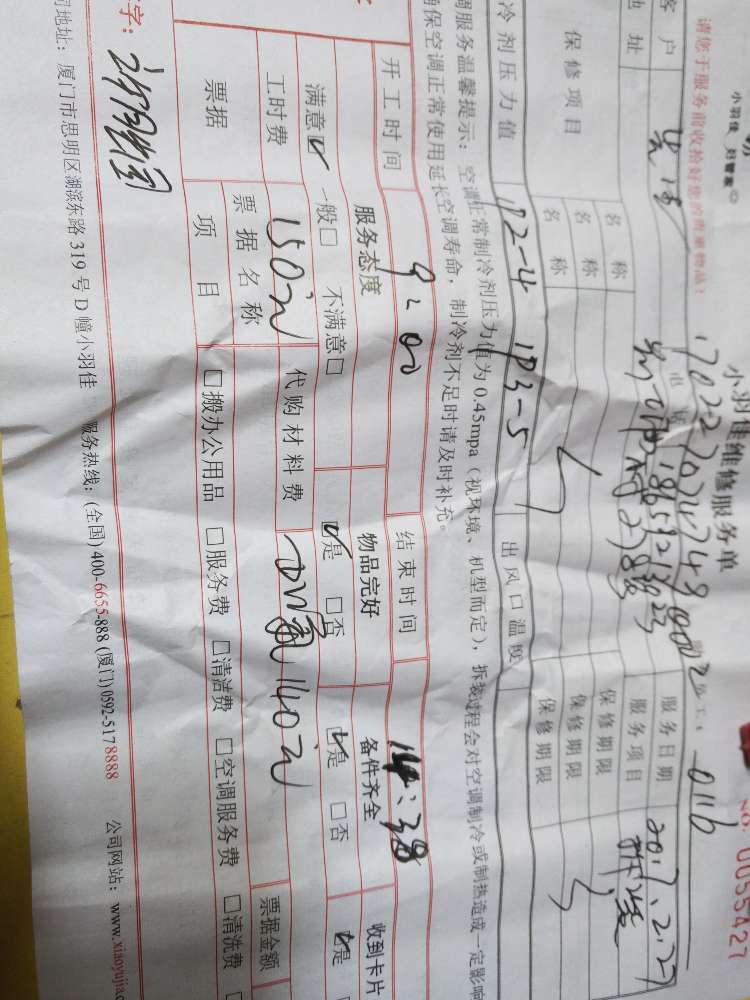 小羽佳 好管家
小羽佳维修服务单
No. 0055427
请您于服务前收拾好您的贵重物品!
0116
客户
服务日期 2017.2.27
地址
服务项目 拆装
保修项目
名称
保修期限
名称
保修期限
名称
冷剂压力值
1P2-4 1P3-5
出风口温度
调服务温馨提示:空调正常制冷剂压力值为0.45mpa(视环境、机型而定),拆装过程会对空调制冷或制热造成一定影响
确保空调正常使用延长空调寿命,制冷剂不足时请及时补充。
开工时间 9:00 结束时间 14:38
服务态度 物品完好 备件齐全 收到卡片
满意☑ 一般□ 不满意□ ☑是 □否 ☑是 □否 ☑是
工时费 150元 代购材料费 140元
票据 票据名称 票据金额
项目 □搬办公用品 □服务费 □清洁费 □空调服务费 □清洗费
字:
司地址:厦门市思明区湖滨东路319号D幢小羽佳 服务热线:(全国)400-6655-888 (厦门)0592-5178888 公司网站:www.xiaoyujia.c